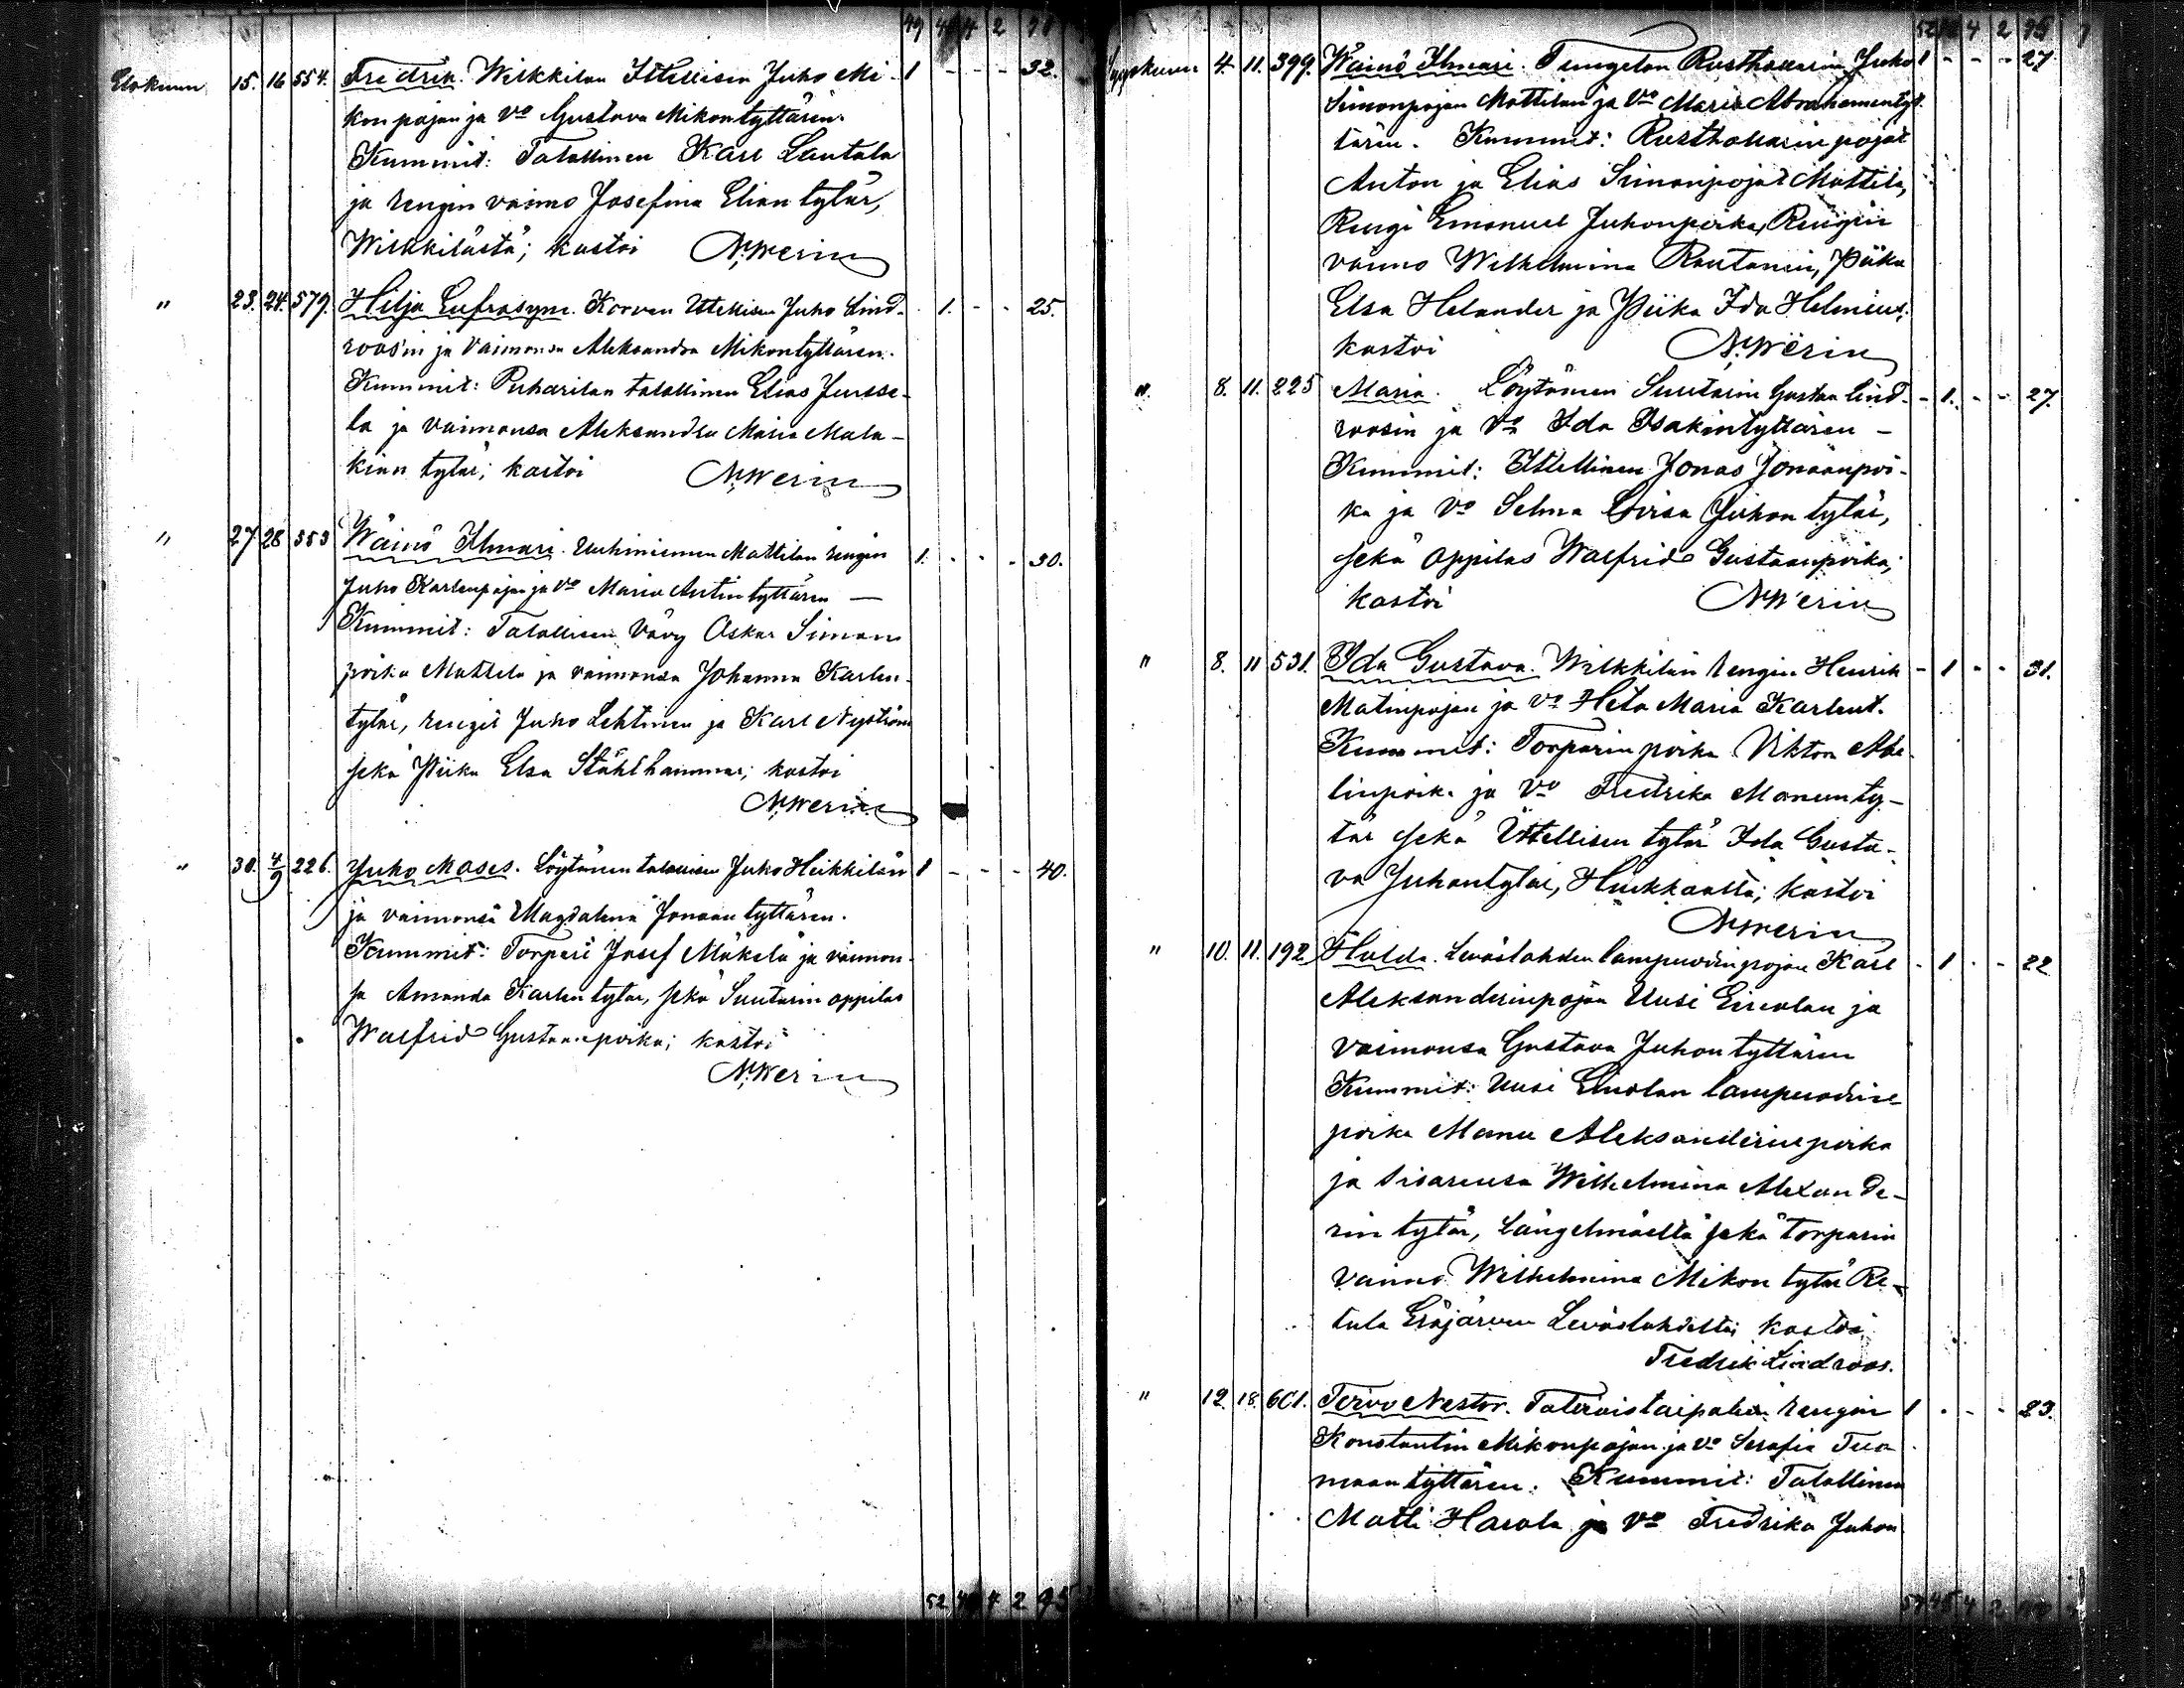 49 4 2
Elokuun 15. 16 554. Fredrik. Wilkkilan Itellisen Juho Mi- 1 - - - 32.
kon pojan ja vo Gustava Mikontyttären.
Kummit: Talollinen Karl Lautala
ja rengin vaimo Josefina Elian tytär,
Wilkkilästä; kastoi N. Werin
" 23. 24. 579. Hilja Eufrosyne. Korven Itellisen Juho Lind- - 1. - - 25.
roos'in ja Vaimonsa Aleksandra Mikontyttären.
Kummit: Puharilan talollinen Elias Jusse-
la ja vaimonsa Aleksandra Maria Mala-
kian tytär; kastoi N. Werin
" 27 28 353 Wäinö Ilmari. Uuhiniemen Mattilan rengin 1. - - - 30.
Juho Karlenpojan ja vo Maria Antintyttären —
Kummit: Talollisen Vävy Oskar Simon
poika Mattila ja vaimonsa Johanna Karlen-
tytär, rengit Juho Lehtinen ja Karl Nyström
sekä Piika Elsa Ståhlhammar; kastoi
N. Werin
" 30. 4/9 226. Juho Moses. Löytänen talollisen Juho Heikkilän 1 - - - 40.
ja vaimonsa Magdalena Jonaan tyttären.
Kummit: Torpari Josef Mäkelä ja vaimon-
sa Amanda Karlen tytär, sekä Suutarin oppilas
Walfrid Gustaanpoika; kastoi
N. Werin
52 4 2 95
52 4 2 95
Syyskuun 4. 11. 399. Wäinö Ilmari. Tungelon Rusthollarin Juho 1 - - - 27.
Simonpojan Mattilan ja Vo Maria Abrahamintyt-
tären. Kummit: Rusthollarin pojat
Anton ja Elias Simonpojat Mattila,
Rengi Emanuel Juhonpoika, Rengin
vaimo Wilhelmina Rautanen, Piika
Elsa Helander ja Piika Ida Helenius;
kastoi N. Werin
". 8. 11. 225 Maria. Löytänen Suutarin Gustaa Lind- - 1. - - 27.
roosin ja Vo Ida Isakintyttären —
Kummit: Itellinen Jonas Jonaanpoi-
ka ja Vo Selma Lovisa Juhon tytär,
sekä oppilas Walfrid Gustaanpoika;
kastoi N. Werin
" 8. 11 531. Ida Gustava. Wilkkilän rengin Henrik - 1 - - 31.
Matinpojan ja Vo Heta Maria Karlent.
Kummit: Torparin poika Viktor Abe-
linpoika ja Vo Fredrika Manunty-
tär sekä Itellisen tytär Ida Gusta-
va Juhontytär, kastoi
N. Werin
" 10. 11. 192. Hulda. Leväslahden lampuodinpojan Karl - 1 - - 22
Aleksanderinpojan Uusi Eirolan ja
vaimonsa Gustava Juhon tyttären
Kummit: Uusi Eirolan lampuodin-
poika Manu Aleksanderinpoika
ja sisarensa Wilhelmina Alexande-
rin tytär, Längelmäeltä sekä torparin
vaimo Wilhelmina Mikon tytär Re-
tula Eräjärven Leväslahdelta; kastoi
Fredrik Lindroos.
" 12. 18. 601. Toivo Nestor. rengin 1 - - - 23.
Konstantin Mikonpojan ja Vo Serafia Tuo-
maan tyttären. Kummit: Talollinen
Matti Harola ja Vo Fredrika Juhon
4 2